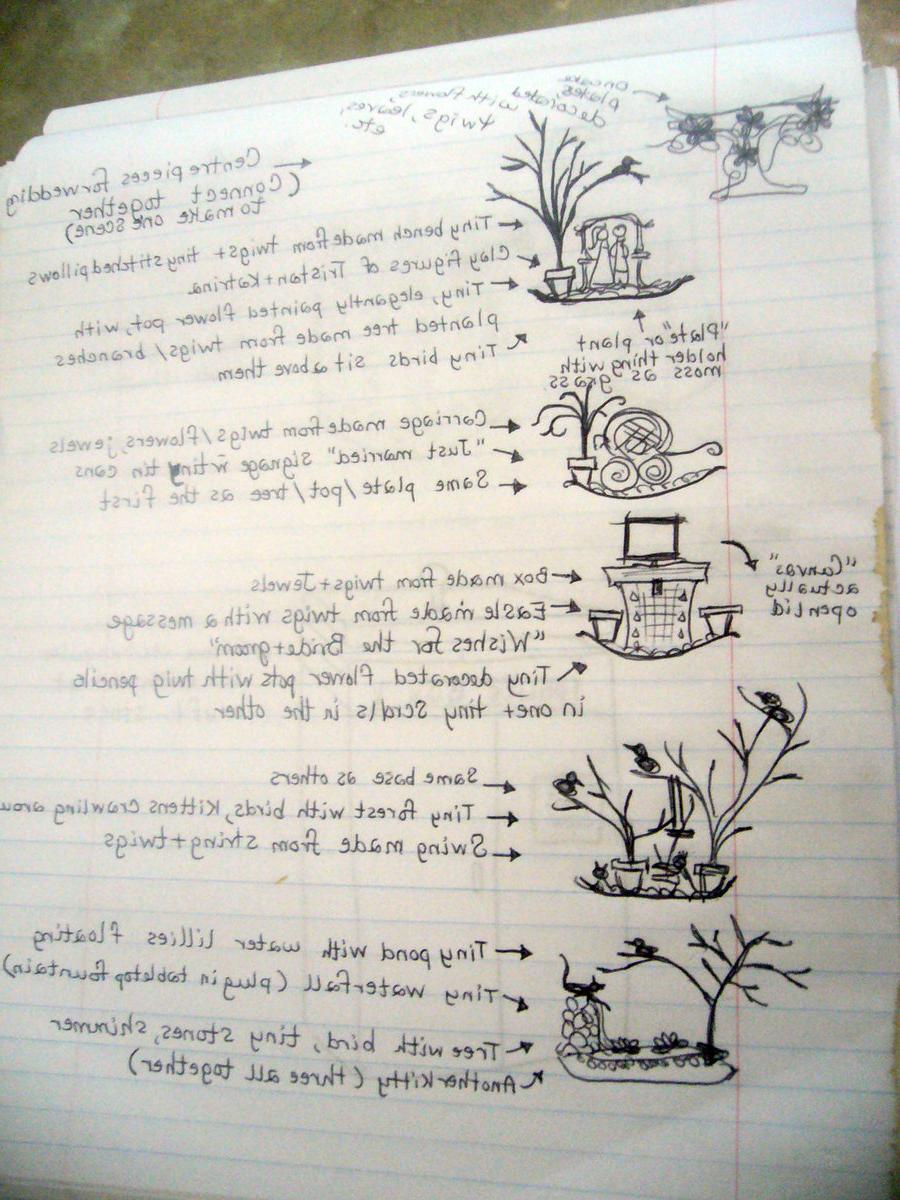 on cake
plates,
decorated with flowers,
twigs, leaves,
etc.
Centre pieces for wedding
(Connect together
to make one scene)
Tiny bench made from twigs + tiny stitched pillows
Clay figures of Tristan + Katrina
Tiny, elegantly painted flower pot, with
planted tree made from twigs/branches
Tiny birds sit above them
"Plate" or plant
holder thing with
moss as grass
Carriage made from twigs/flowers, jewels
"Just married" signage tin cans
Same plate/pot/tree as the first
Box made from twigs + Jewels
Easle made from twigs with a message
"Wishes for the Bride + groom"
Tiny decorated flower pots with twig pencils
in one + tiny in the other
"Canvas"
actually
open lid
Same base as others
Tiny forest with birds, kittens crawling arou
Swing made from string + twigs
Tiny pond with water lillies floating
Tiny waterfall (plug in tabletop fountain)
Tree with bird, tiny stones, shimmer
Another Kitty (three all together)